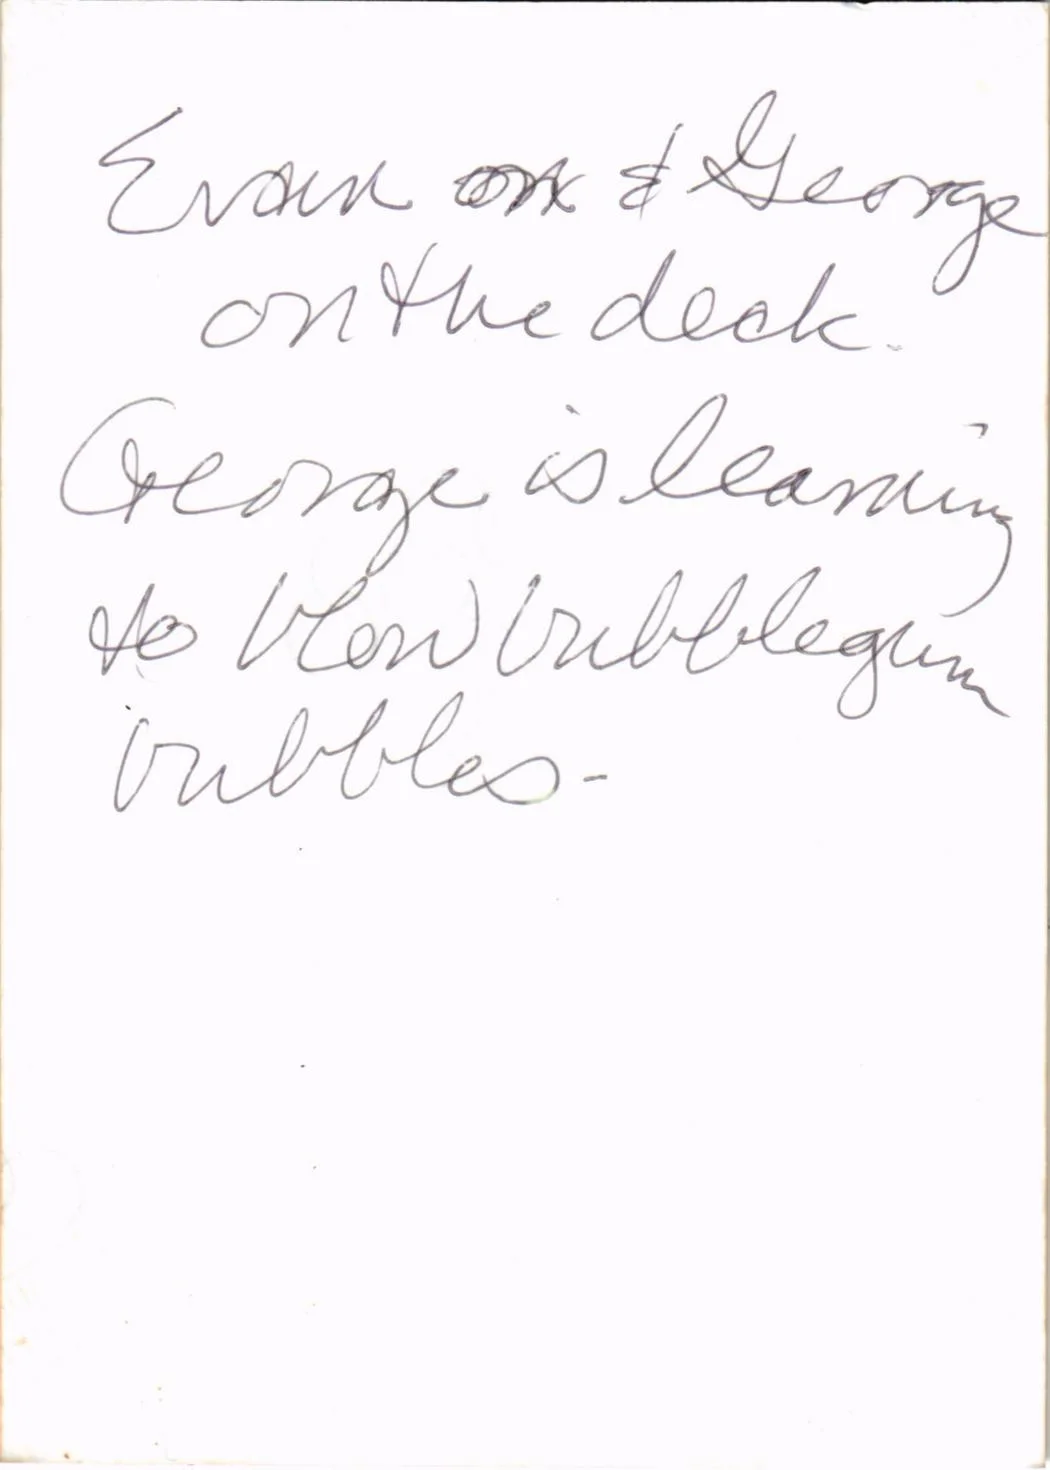 Evan on & George
on the deck.
George is learning
to blow bubblegum
bubbles-